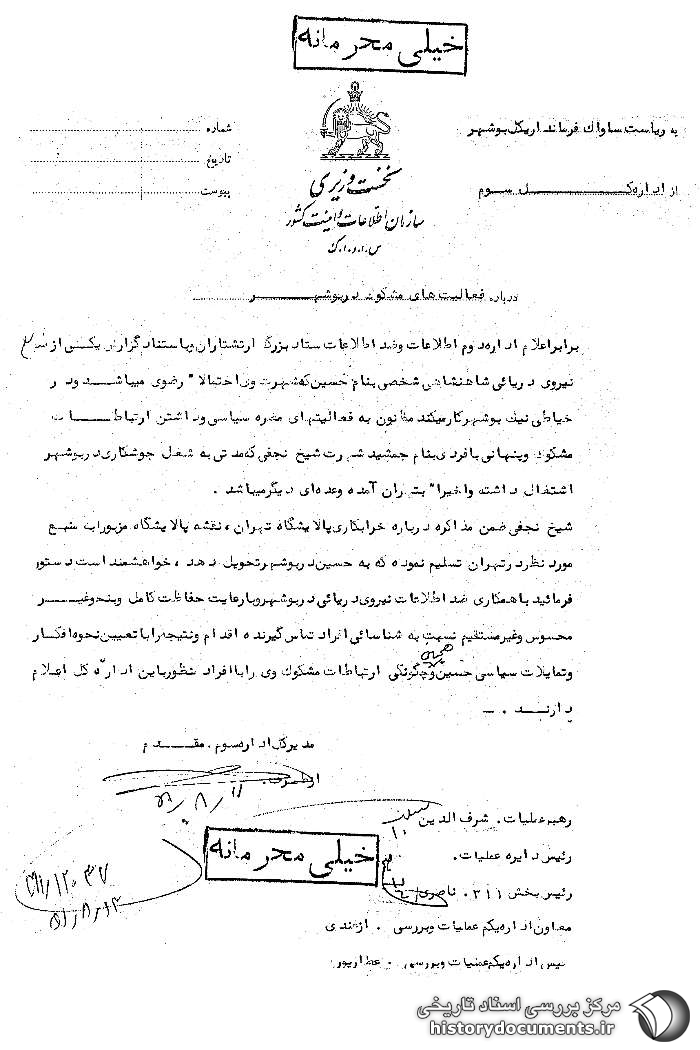 خیلی محرمانه
به ریاست ساواک فرمانداریکل بوشهر
شماره
تاریخ
از اداره کل سوم
پیوست
نخست وزیری
سازمان اطلاعات و امنیت کشور
س.ا.و.ا.ک
درباره فعالیت های مشکوک در بوشهر
برابر اعلام اداره دوم اطلاعات و ضد اطلاعات ستاد بزرگ ارتشتاران و باستناد گزارش یکی از منابع
نیروی دریائی شاهنشاهی شخصی بنام حسین که شهرت وی احتمالا" رضوی میباشد و در
خیاطی نیک بوشهر کار میکند مظنون به فعالیتهای مضره سیاسی و داشتن ارتباطات
مشکوک و پنهانی با فردی بنام جمشید شهرت شیخ نجفی که مدتی به شغل جوشکاری در بوشهر
اشتغال داشته و اخیرا" بتهران آمده وعده ای دیگر میباشد .
شیخ نجفی ضمن مذاکره درباره خرابکاری پالایشگاه تهران ، نقشه پالایشگاه مزبور را به منبع
مورد نظر در تهران تسلیم نموده که به حسین در بوشهر تحویل دهد ، خواهشمند است دستور
فرمائید با همکاری ضد اطلاعات نیروی دریائی در بوشهر و با رعایت حفاظت کامل و بنحو غیر
محسوس و غیر مستقیم نسبت به شناسائی افراد تماس گیرنده اقدام و نتیجه را با تعیین نحوه افکار
و تمایلات سیاسی حسین و چگونگی ارتباطات مشکوک وی را با افراد منظور باین اداره کل اعلام
دارند . ـ
مدیرکل اداره سوم . مقدم
از طرف
۵۱/۸/۱۱
رهبر عملیات . شرف الدین
رئیس دایره عملیات .
خیلی محرمانه
رئیس بخش ۳۱۱ . ناصری
۵۱/۸/۱۴
معاون اداره یکم عملیات و بررسی . ازغندی
رئیس اداره یکم عملیات و بررسی . عطارپور
مرکز بررسی اسناد تاریخی
historydocuments.ir